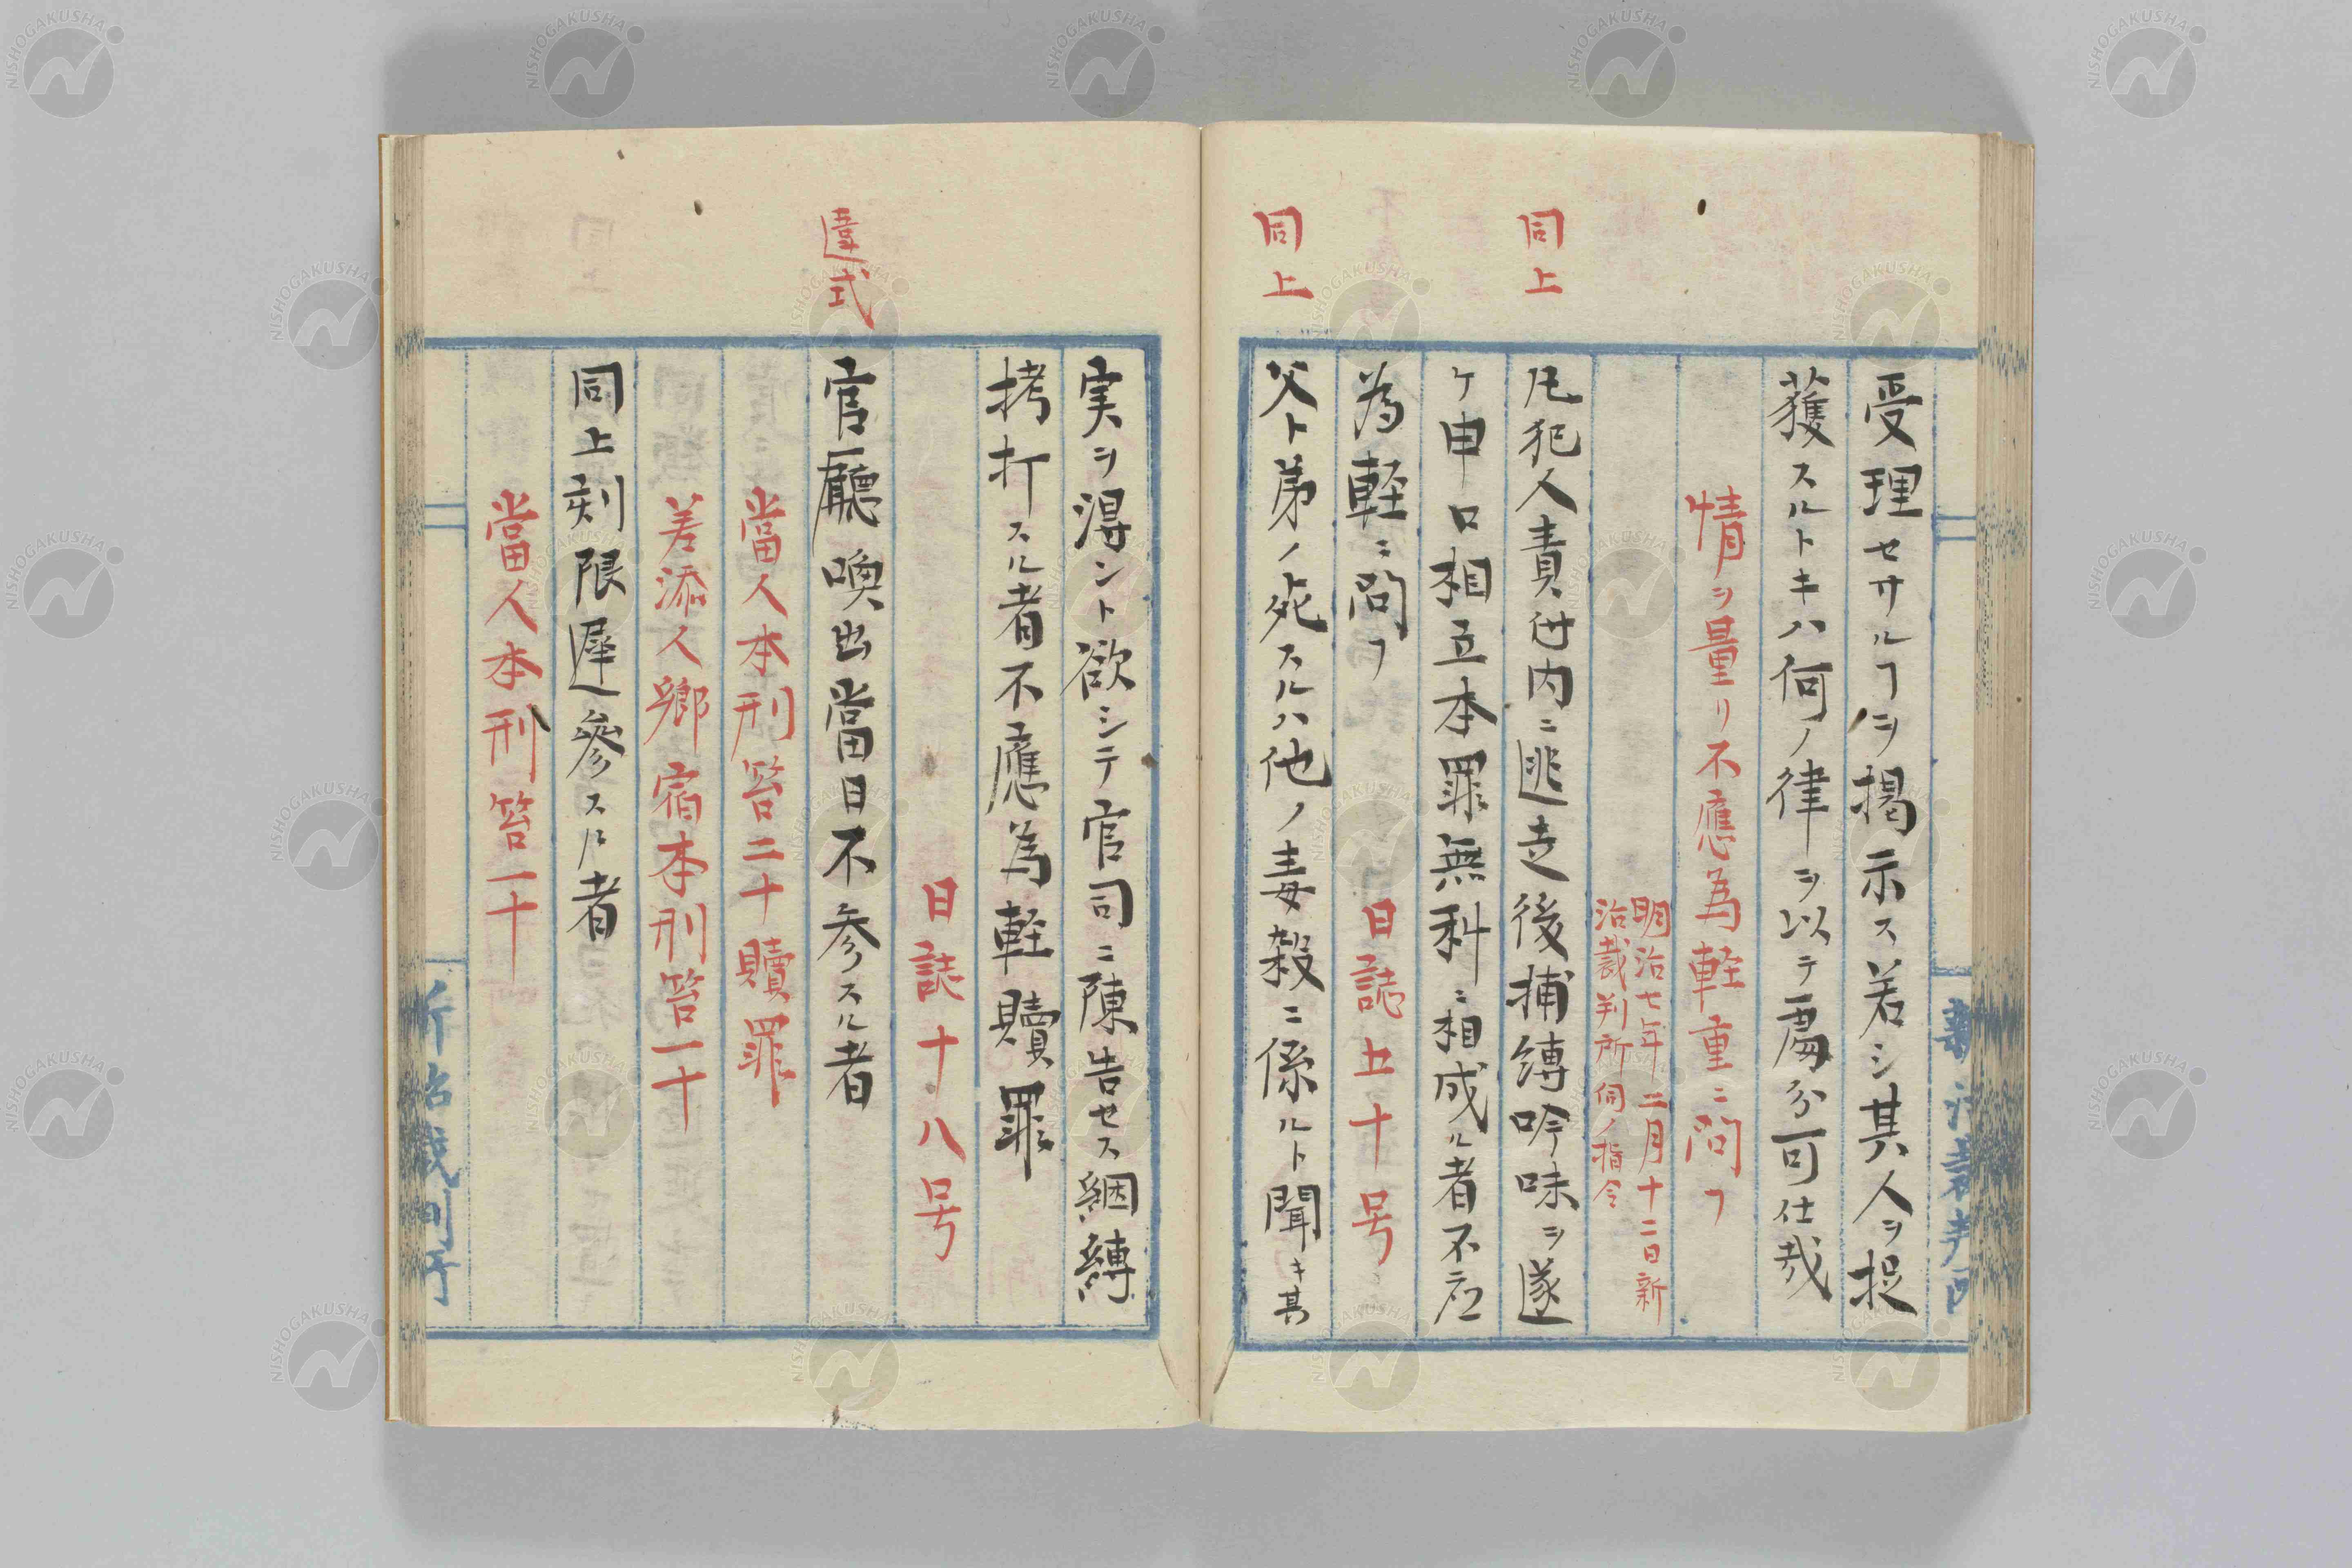 受理セサルヿヲ掲示ス若シ其人ヲ捉
獲スルトキハ何ノ律ヲ以テ處分可仕哉
情ヲ量リ不應為軽重ニ問フ
明治七年二月十二日新
治裁判所伺ノ指令
同上
凡犯人責付内ニ逃走後捕縛吟味ヲ遂
ケ申口相立本罪無科ニ相成ル者不応
為軽ニ問フ
日誌五十号
同上
父ト弟ノ死スルハ他ノ毒殺ニ係ルト聞キ其
実ヲ淂ント欲シテ官司ニ陳告セス綑縛
拷打スル者不應為軽贖罪
日誌十八号
違式
官廳喚出當日不参スル者
當人本刑笞二十贖罪
差添人郷宿本刑笞一十
同上刻限遅參スル者
當人本刑笞一十
新治裁判所
NISHOGAKUSHA